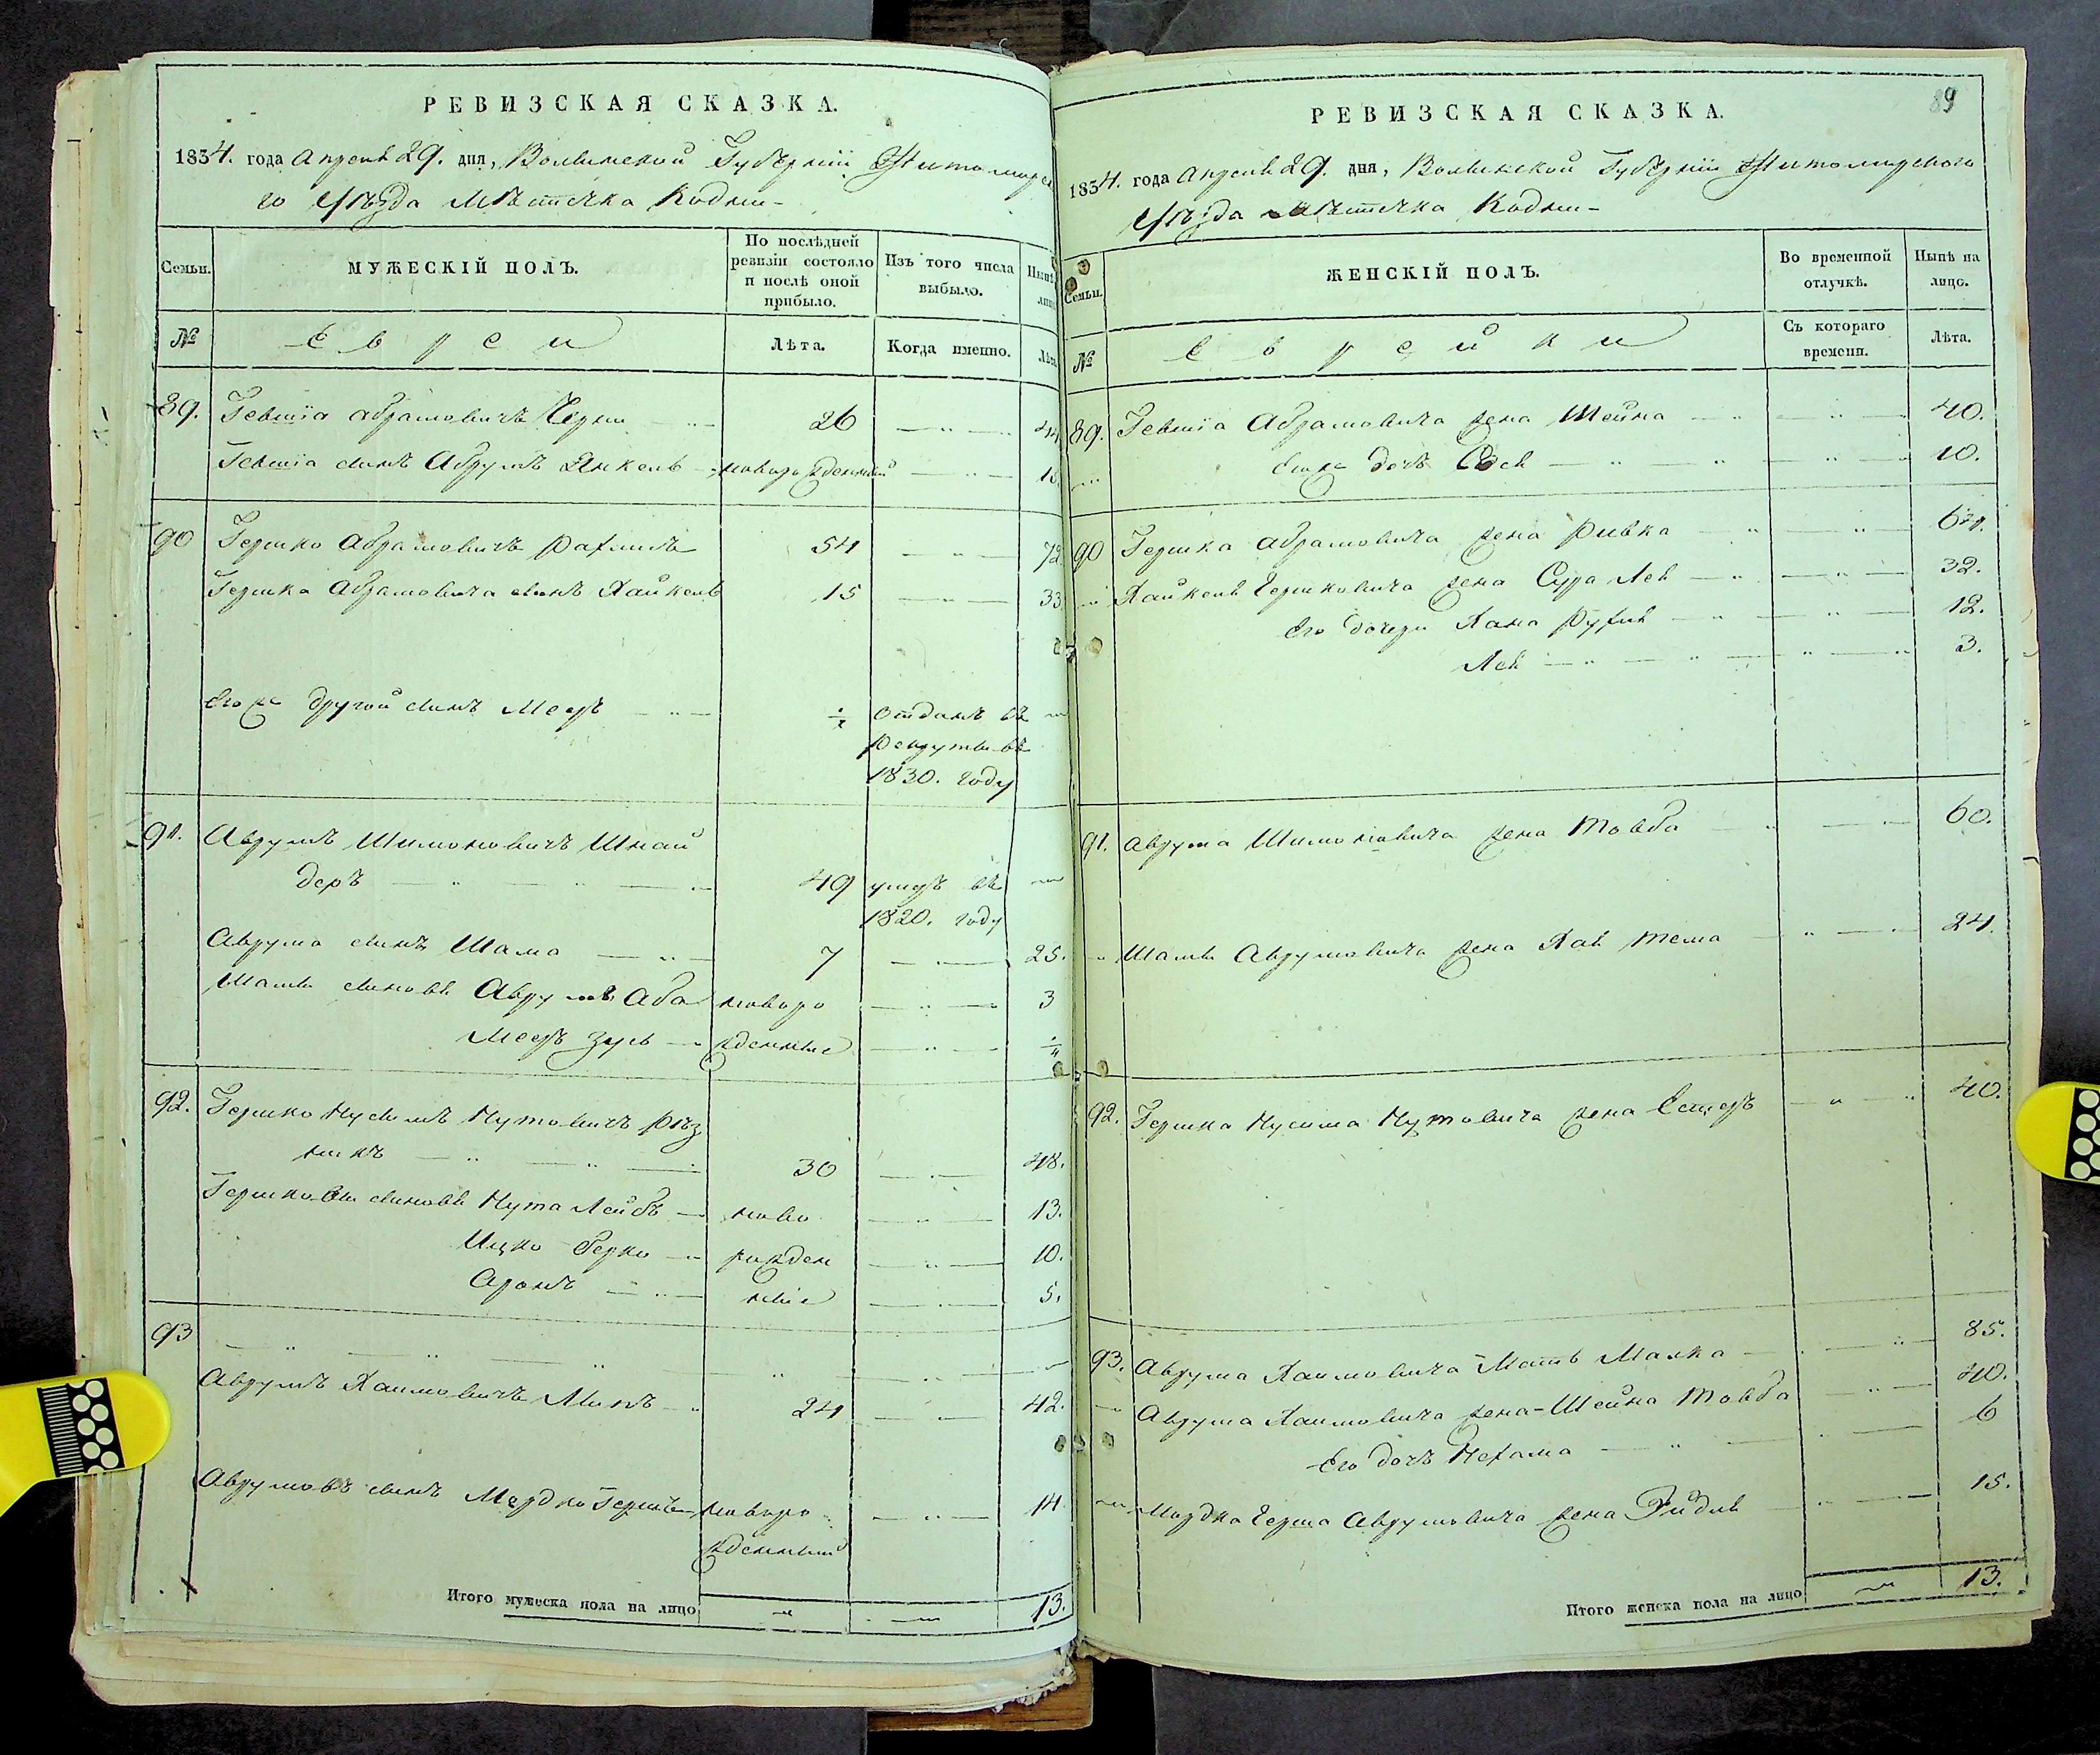 РЕВИЗСКАЯ СКАЗКА.
1834. года Апреля 29. дня, Волынской Губерніи Житомирска
го Уѣзда Мѣстечка Кодни-
Семьи.
МУЖЕСКІЙ ПОЛЪ.
По послѣдней ревизіи состояло и послѣ оной прибыло.
Изъ того числа выбыло.
№
Евреи
Лѣта.
Когда именно.
Лѣта
89. Гевшіа Абрамовичъ 26 44
Гевшіа сынъ Абрумъ Янкель новорожденный
90 Гершко Абрамовичъ Рахлисъ 54 72
Гершка Абрамовича сынъ Хайкель 15 33
Его же другой сынъ Мееръ отданъ въ
рекруты въ
1830. году
91. Аврумъ Шимоновичъ Шнай
деръ 49 умеръ въ
1820. году
Аврума сынъ Шама 7 25.
Шамы сыновья Аврумъ Аба новоро 3
Мееръ Зусь жденные
92. Гершко Нусимъ Нутовичъ Рѣз
никъ 30 48.
Гершковы сыновья Нута Лейбъ ново 13.
Ицко Берко рожден 10.
Аронъ ные 5.
93
Аврумъ Хаимовичъ 24 42.
Аврумовъ сынъ Мордко Гершъ новоро 14
жденный
Итого мужеска пола на лицо 13.
89
РЕВИЗСКАЯ СКАЗКА.
1834. года Апреля 29. дня, Волынской Губерніи Житомирского
Уѣзда Мѣстечка Кодни-
Семьи.
ЖЕНСКІЙ ПОЛЪ.
Во временной отлучкѣ.
Нынѣ на лицо.
№
Еврейки
Съ котораго времени.
Лѣта.
89. Гевшіа Абрамовича жена Шейна 40.
Его же дочь 10.
90 Гершка Абрамовича жена Ривка
Хайкеля Гершковича жена Сура Лея 32.
Его дочери Хана Рухля 12.
Лея 3.
91. Аврума Шимоновича жена Товба 60.
Шамы Аврумовича жена Хая Тема 24.
92. Гершка Нусима Нутовича жена Естеръ 40.
93. Аврума Хаимовича Мать Малка 85.
Аврума Хаимовича жена Шейна Товба 40.
Его дочь Нехама 6
Мордка Герша Аврумовича жена Рейдля 15.
Итого женска пола на лицо 13.